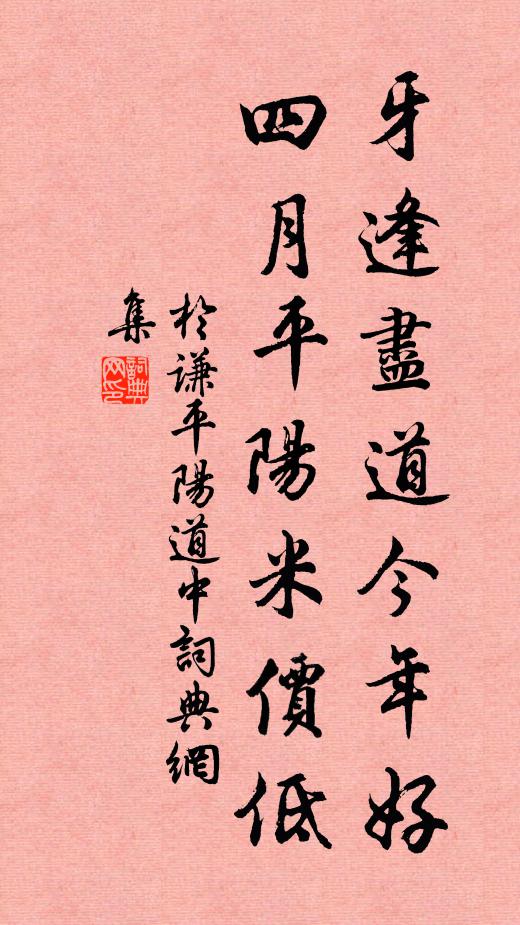 牙逢盡道今年好
四月平陽米價低
於謙平陽道中詞典網
集
詞典
网印